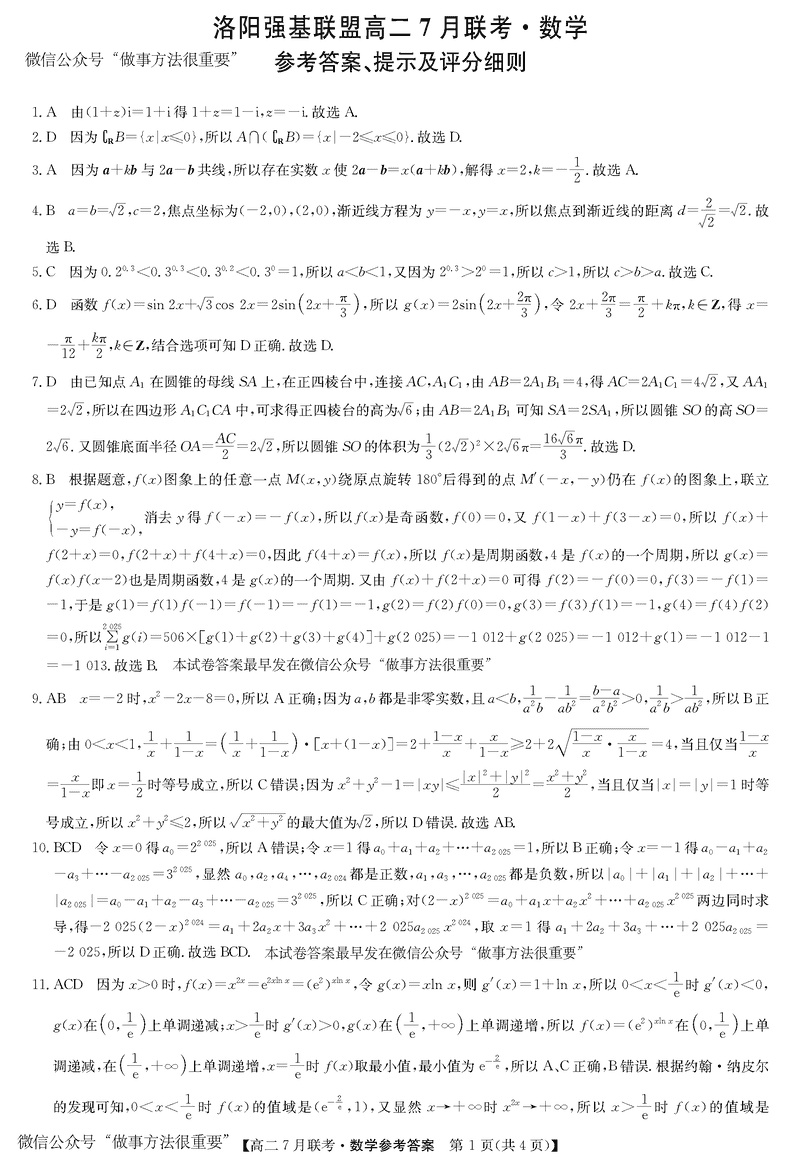 洛阳强基联盟高二7月联考·数学
微信公众号“做事方法很重要”
参考答案、提示及评分细则
1. A 由(1+z)i=1+i得1+z=1-i,z=-i.故选A.
2. D 因为∁RB={x|x≤0},所以A∩(∁RB)={x|-2≤x≤0}.故选D.
3. A 因为a+kb与2a-b共线,所以存在实数x使2a-b=x(a+kb),解得x=2,k=-1/2.故选A.
4. B a=b=√2,c=2,焦点坐标为(-2,0),(2,0),渐近线方程为y=-x,y=x,所以焦点到渐近线的距离d=2/√2=√2.故
选B.
5. C 因为0.2^0.3<0.3^0.3<0.3^0.2<0.3^0=1,所以a<b<1,又因为2^0.3>2^0=1,所以c>1,所以c>b>a.故选C.
6. D 函数f(x)=sin 2x+√3cos 2x=2sin(2x+π/3),所以g(x)=2sin(2x+2π/3),令2x+2π/3=π/2+kπ,k∈Z,得x=
-π/12+kπ/2,k∈Z,结合选项可知D正确.故选D.
7. D 由已知点A₁在圆锥的母线SA上,在正四棱台中,连接AC,A₁C₁,由AB=2A₁B₁=4,得AC=2A₁C₁=4√2,又AA₁
=2√2,所以在四边形A₁C₁CA中,可求得正四棱台的高为√6;由AB=2A₁B₁可知SA=2SA₁,所以圆锥SO的高SO=
2√6.又圆锥底面半径OA=AC/2=2√2,所以圆锥SO的体积为1/3(2√2)²×2√6π=16√6π/3.故选D.
8. B 根据题意,f(x)图象上的任意一点M(x,y)绕原点旋转180°后得到的点M′(-x,-y)仍在f(x)的图象上,联立
{y=f(x),
-y=f(-x), 消去y得f(-x)=-f(x),所以f(x)是奇函数,f(0)=0,又f(1-x)+f(3-x)=0,所以f(x)+
f(2+x)=0,f(2+x)+f(4+x)=0,因此f(4+x)=f(x),所以f(x)是周期函数,4是f(x)的一个周期,所以g(x)=
f(x)f(x-2)也是周期函数,4是g(x)的一个周期.又由f(x)+f(2+x)=0可得f(2)=-f(0)=0,f(3)=-f(1)=
-1,于是g(1)=f(1)f(-1)=f(-1)=-f(1)=-1,g(2)=f(2)f(0)=0,g(3)=f(3)f(1)=-1,g(4)=f(4)f(2)
=0,所以∑_{i=1}^{2 025}g(i)=506×[g(1)+g(2)+g(3)+g(4)]+g(2 025)=-1 012+g(2 025)=-1 012+g(1)=-1 012-1
=-1 013.故选B. 本试卷答案最早发在微信公众号“做事方法很重要”
9. AB x=-2时,x²-2x-8=0,所以A正确;因为a,b都是非零实数,且a<b,1/(a²b)-1/(ab²)=(b-a)/(a²b²)>0,1/(a²b)>1/(ab²),所以B正
确;由0<x<1,1/x+1/(1-x)=(1/x+1/(1-x))·[x+(1-x)]=2+(1-x)/x+x/(1-x)≥2+2√((1-x)/x·x/(1-x))=4,当且仅当(1-x)/x
=x/(1-x)即x=1/2时等号成立,所以C错误;因为x²+y²-1=|xy|≤(|x|²+|y|²)/2=(x²+y²)/2,当且仅当|x|=|y|=1时等
号成立,所以x²+y²≤2,所以√(x²+y²)的最大值为√2,所以D错误.故选AB.
10. BCD 令x=0得a₀=2^2 025,所以A错误;令x=1得a₀+a₁+a₂+⋯+a₂ ₀₂₅=1,所以B正确;令x=-1得a₀-a₁+a₂
-a₃+⋯-a₂ ₀₂₅=3^2 025,显然a₀,a₂,a₄,⋯,a₂ ₀₂₄都是正数,a₁,a₃,⋯,a₂ ₀₂₅都是负数,所以|a₀|+|a₁|+|a₂|+⋯+
|a₂ ₀₂₅|=a₀-a₁+a₂-a₃+⋯-a₂ ₀₂₅=3^2 025,所以C正确;对(2-x)^2 025=a₀+a₁x+a₂x²+⋯+a₂ ₀₂₅x^2 025两边同时求
导,得-2 025(2-x)^2 024=a₁+2a₂x+3a₃x²+⋯+2 025a₂ ₀₂₅x^2 024,取x=1得a₁+2a₂+3a₃+⋯+2 025a₂ ₀₂₅=
-2 025,所以D正确.故选BCD. 本试卷答案最早发在微信公众号“做事方法很重要”
11. ACD 因为x>0时,f(x)=x^(2x)=e^(2xln x)=(e²)^(xln x),令g(x)=xln x,则g′(x)=1+ln x,所以0<x<1/e时g′(x)<0,
g(x)在(0,1/e)上单调递减;x>1/e时g′(x)>0,g(x)在(1/e,+∞)上单调递增,所以f(x)=(e²)^(xln x)在(0,1/e)上单
调递减,在(1/e,+∞)上单调递增,x=1/e时f(x)取最小值,最小值为e^(-2/e),所以A、C正确,B错误.根据约翰·纳皮尔
的发现可知,0<x<1/e时f(x)的值域是(e^(-2/e),1),又显然x→+∞时x^(2x)→+∞,所以x>1/e时f(x)的值域是
微信公众号“做事方法很重要” 【高二7月联考·数学参考答案 第1页(共4页)】